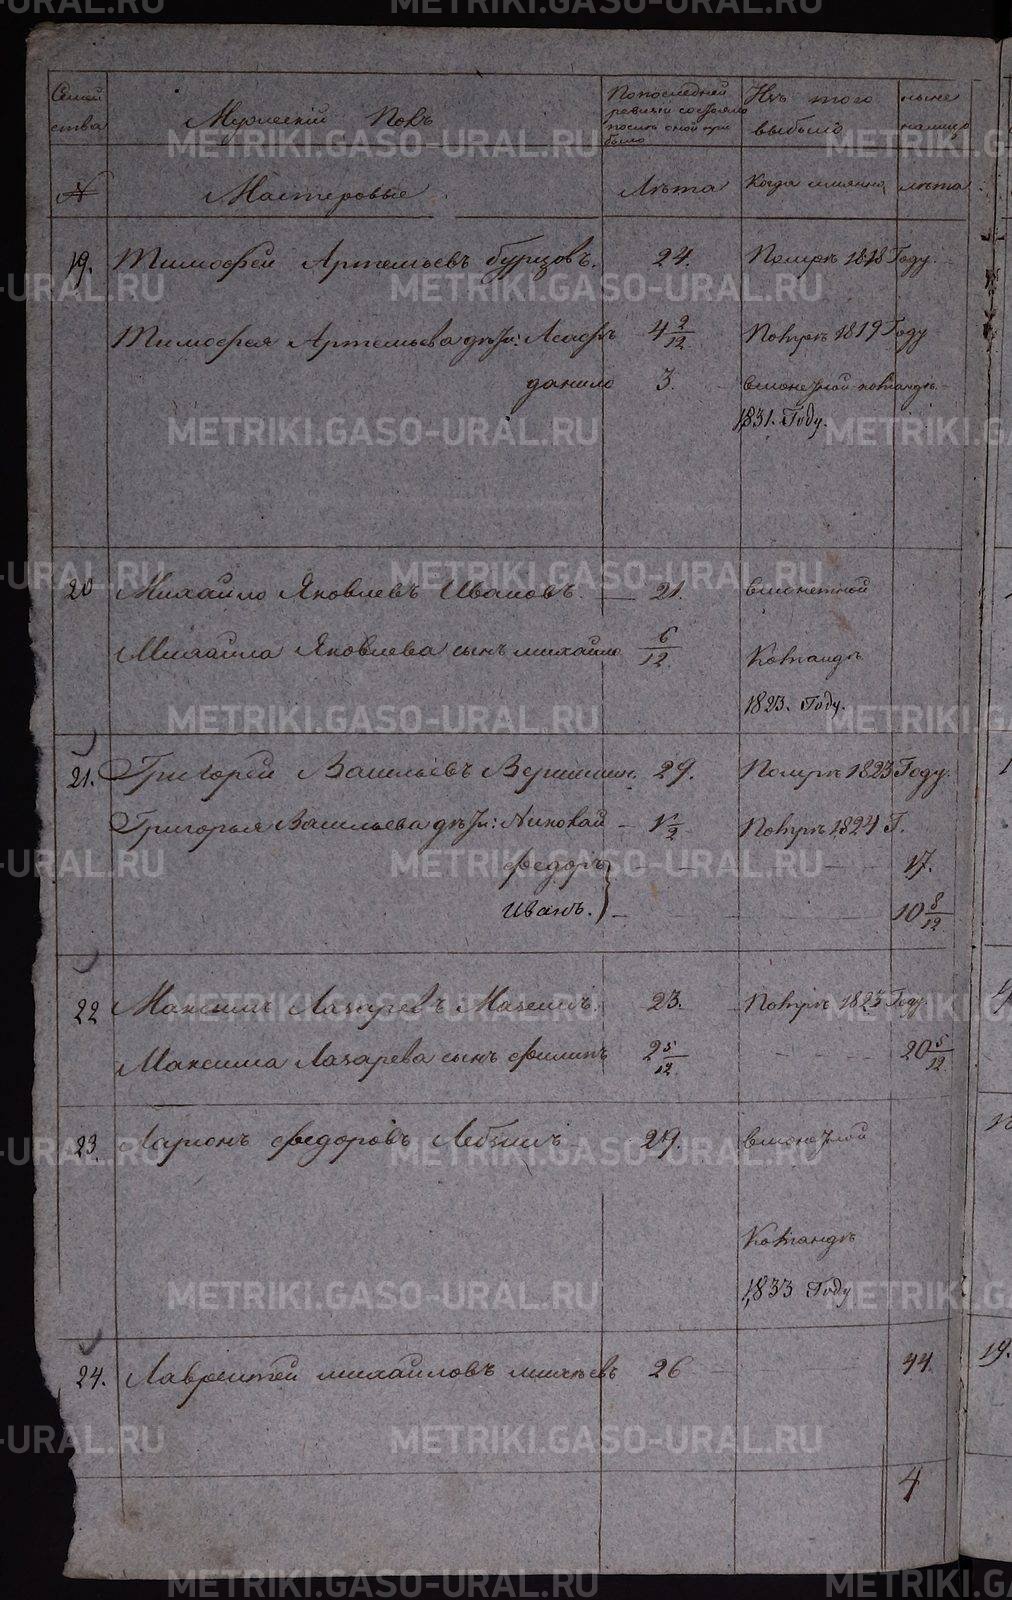 Семей
ства
Мужеский Полъ
По последней
ревизии состояло
после оной при
было
Изъ того
выбыло
ныне
налицо
№
Мастеровые
Лета
Когда имянно
лета
19. Тимофей Артемьевъ бурцовъ. 24. Померъ 1818 Году.
Тимофея Артемьева дети: Асафъ 4 9/12 Померъ 1819 Году
данило 3. в монетной команде
1831. Году.
20 Михайло Яковлевъ Ивановъ. 21. в монетной
Михаила Яковлева сынъ михайло 6/12 Команде
1823. Году.
21. Григорей Васильевъ Вершинин. 29. Померъ 1823 Году.
Григорья Васильева дети: Николай 1/2 Померъ 1824 Г.
федоръ 17.
Иванъ. 10 8/12
22 Максимъ Лазаревъ Мазеинъ. 23. Померъ 1823 Году
Максима Лазарева сынъ филипъ 2 5/12 20 5/12
23. Ларионъ федоровъ 29. в монетной
Команде
1833 Году
24. Лаврентей михайловъ михеевъ 26 44.
19.
4
METRIKI.GASO-URAL.RU